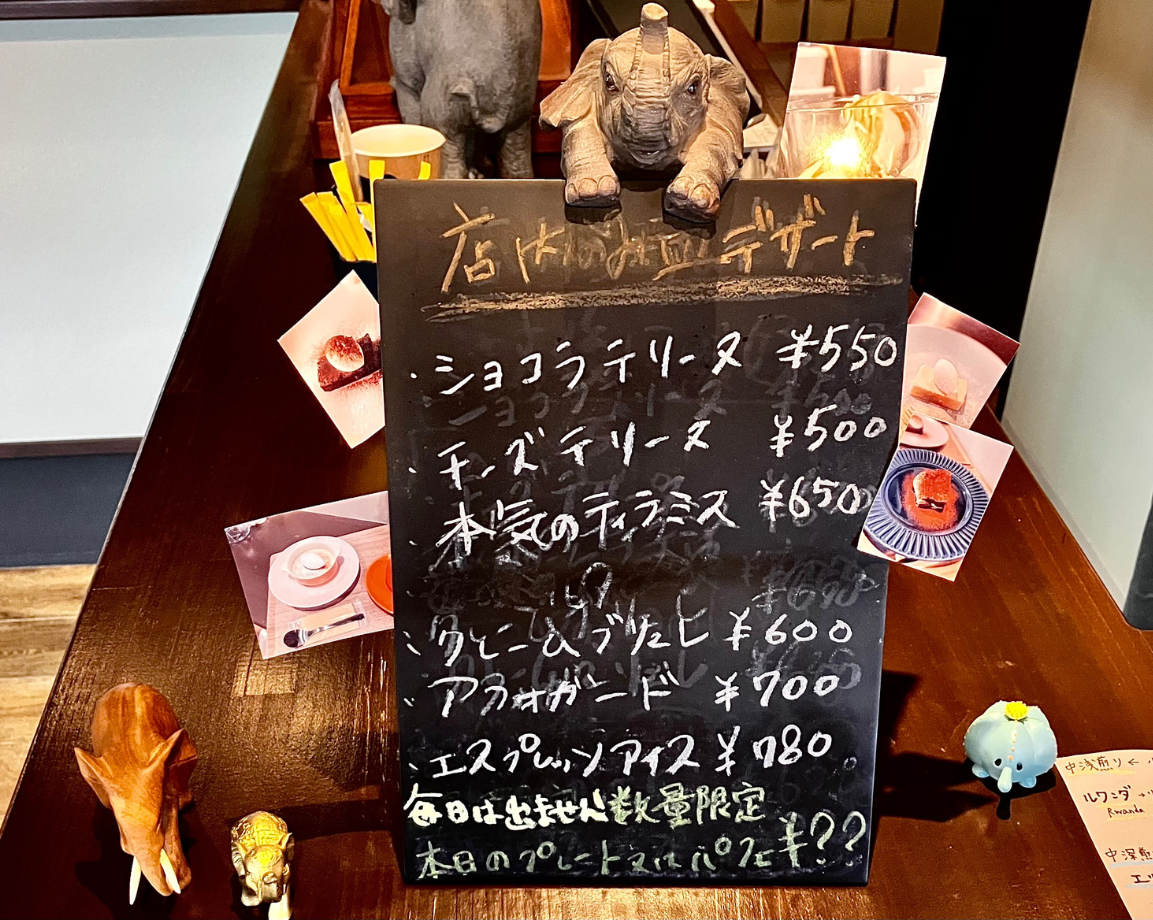 店内のみ デザート
・ショコラテリーヌ ¥550
・チーズテリーヌ ¥500
・本気のティラミス ¥650
¥600
・アフォガード ¥700
・エスプレッソアイス ¥780
毎日は出ません数量限定
本日のプレート又はパフェ ¥??
中浅煎り←
ルワンダ
Rwanda
中深煎
エ